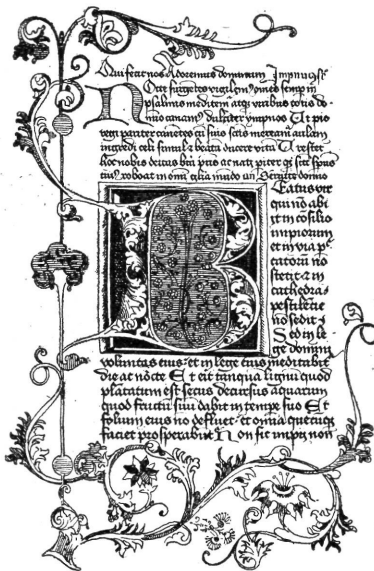 Qui fecit nos Adoremus dominum Ympnus
Nocte surgetes vigilem⁹ omēs semp in
psalmis meditem atq; viribus totis do-
mio canam⁹ dulciter ympnos Vt pio
regi pariter canētes cū suis scīs meream̄ aulam
ingredi celi simul & beatā ducere vitā
hoc nobis deitas
Beatus vir
qui nō abi
it in cōsilio
impiorum
et in via p̄
catorū nō
stetit & in
cathedra
pestilētie
nō sedit
Sed in le
ge domini
voluntas eius et in lege eius meditabit̄
die ac nocte Et erit tanquā lignū quod
plātatum est secus decursus aquarum
quod fructū suū dabit in tempe suo Et
folium eius nō defluet et omīa quecūq;
faciet prosperabūt̄ Non sic impii non